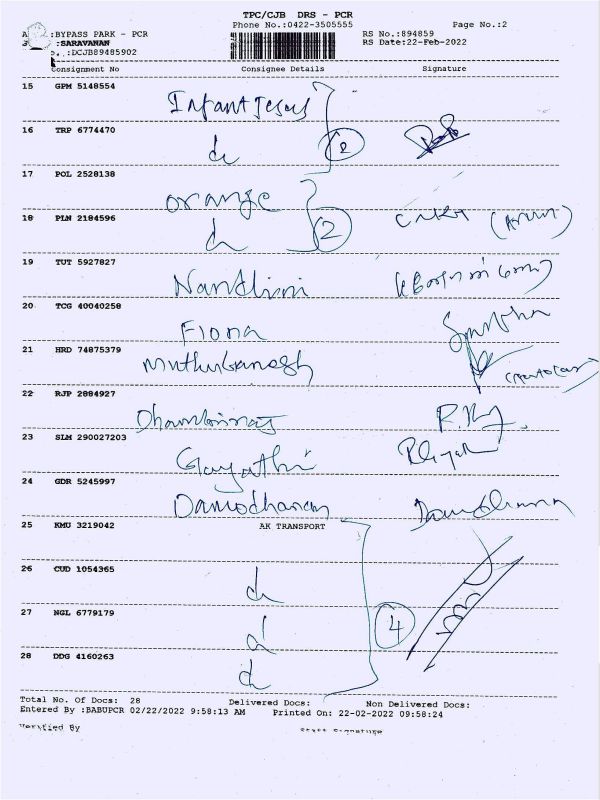 TPC/CJB DRS - PCR
Phone No.:0422-3505555 Page No.:2
:BYPASS PARK - PCR RS No.:894859
:SARAVANAN RS Date:22-Feb-2022
:DCJB89485902
Consignment No Consignee Details Signature
15 GPM 5148554 Infant Jesus
16 TRP 6774470 do 2
17 POL 2528138 Orange
18 PLN 2184596 do 2
19 TUT 5927827 Nandhini
20 TCG 40040258 Fiona
21 HRD 74875379 Muthuganesh
22 RJP 2884927
23 SLM 290027203 Gayathri
24 GDR 5245997 Damodharan
25 KMU 3219042 AK TRANSPORT
26 CUD 1054365 do
27 NGL 6779179 do 4
28 DDG 4160263 do
Total No. Of Docs: 28 Delivered Docs: Non Delivered Docs:
Entered By :BABUPCR 02/22/2022 9:58:13 AM Printed On: 22-02-2022 09:58:24
Verified By Staff Signature